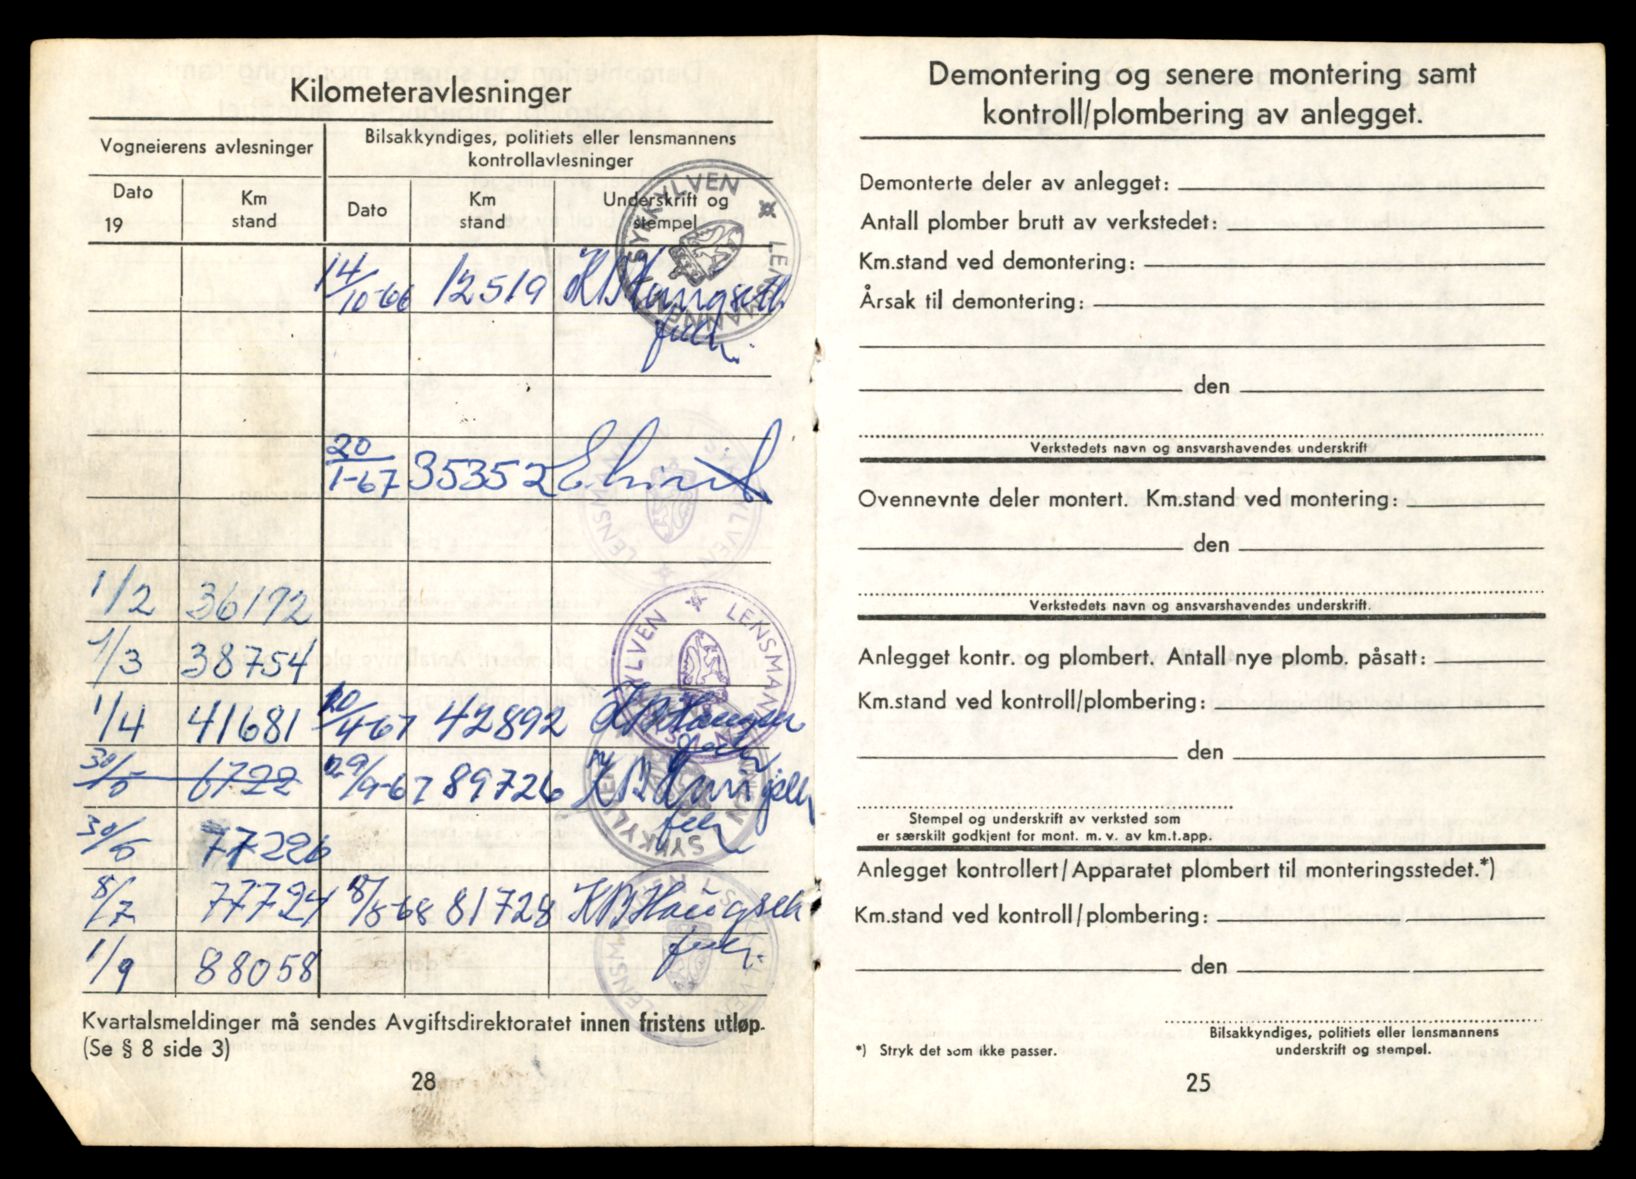 Kilometeravlesninger
Vogneierens avlesninger
Bilsakkyndiges, politiets eller lensmannens
kontrollavlesninger
Dato
19
Km
stand
Dato
Km
stand
Underskrift og
stempel
SYKKYLVEN LENSMANNEN
14/10-66 12519
20/1-67 35352
1/2 36172
1/3 38754
1/4 41681 20/4-67 42892
30/5 6722 29/9-67 89726
30/5 77226
8/7 77724 8/8-68 81728
1/9 88058
Kvartalsmeldinger må sendes Avgiftsdirektoratet innen fristens utløp.
(Se § 8 side 3)
28
Demontering og senere montering samt
kontroll/plombering av anlegget.
Demonterte deler av anlegget:
Antall plomber brutt av verkstedet:
Km.stand ved demontering:
Årsak til demontering:
den
Verkstedets navn og ansvarshavendes underskrift
Ovennevnte deler montert. Km.stand ved montering:
den
Verkstedets navn og ansvarshavendes underskrift.
Anlegget kontr. og plombert. Antall nye plomb. påsatt:
Km.stand ved kontroll/plombering:
den
Stempel og underskrift av verksted som
er særskilt godkjent for mont. m. v. av km.t.app.
Anlegget kontrollert/Apparatet plombert til monteringsstedet.*)
Km.stand ved kontroll/plombering:
den
Bilsakkyndiges, politiets eller lensmannens
underskrift og stempel.
*) Stryk det som ikke passer.
25